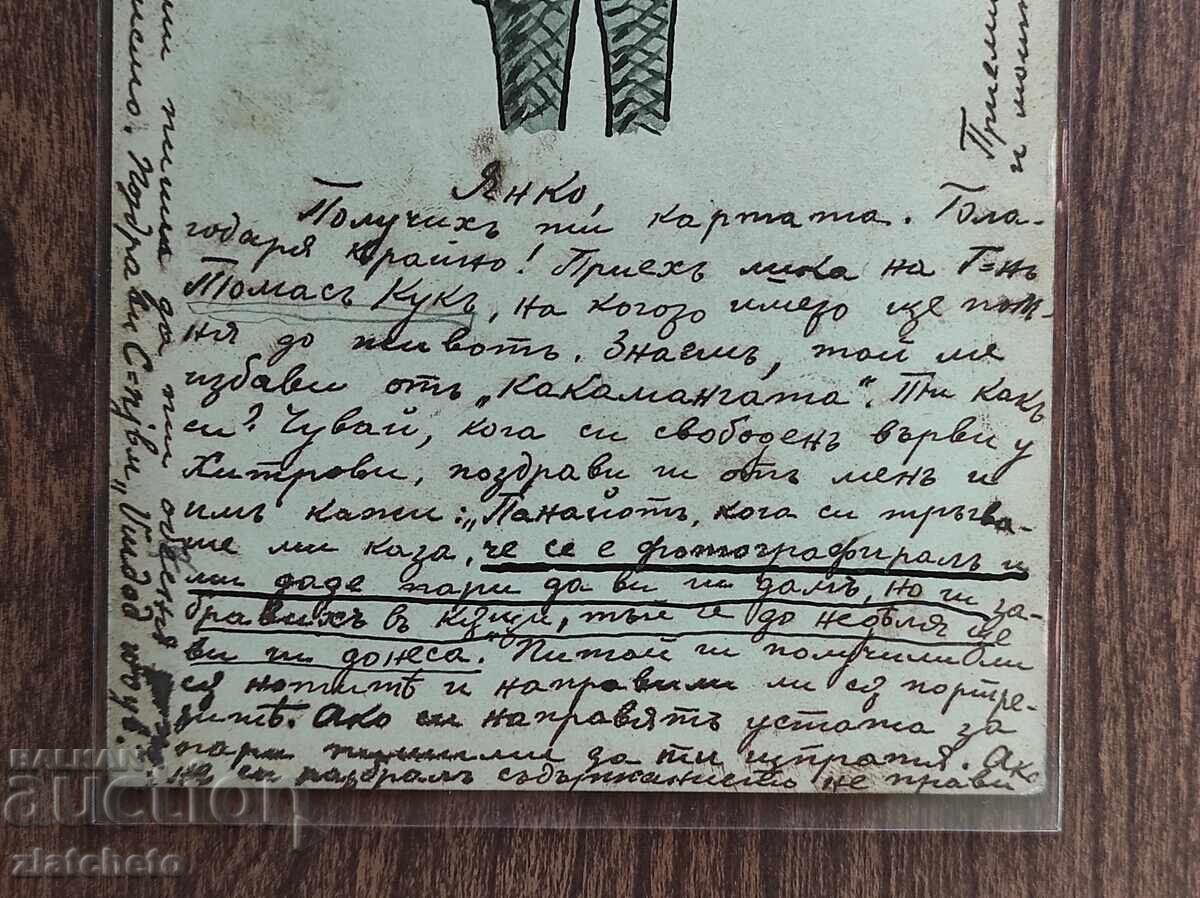 Янко,
Получихъ ти картата. Бла-
годаря крайно! Приехъ лика на Г=нъ
Томасъ Кукъ, на когото името ще пом-
ня до животъ. Знаешъ, той ме
избави отъ „какамангата“. Ти какъ
си? Чувай, кога си свободенъ върви у
Хитрови, поздрави ги отъ менъ и
имъ кажи: „Панайотъ, кога си тръгва-
ше ми каза, че се е фотографиралъ и
ми даде пари да ви ги дамъ, но ги за-
бравихъ в къщи, тъй че до недѣля ще
ви ги донеса.“ Питай ги получили ли
сѫ нотитѣ и направили ли сѫ портре-
титѣ. Ако си направятъ устата за
пари пиши ми да ти изпратя. Ако
не си разбралъ съдържанието не прави
ми пиша да ти обесня
писмо. Поздрави
Приеми
и моит
BALKAN
auction
zlatcheto